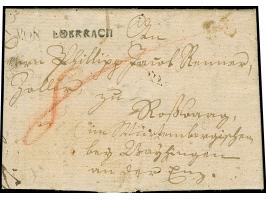 VON LOERRACH
Den
Herrn Phillipp Jacob Renner,
Zoller
zu
Roßwaag,
im Würtembergischen
bey Vayhingen
an der Enz.